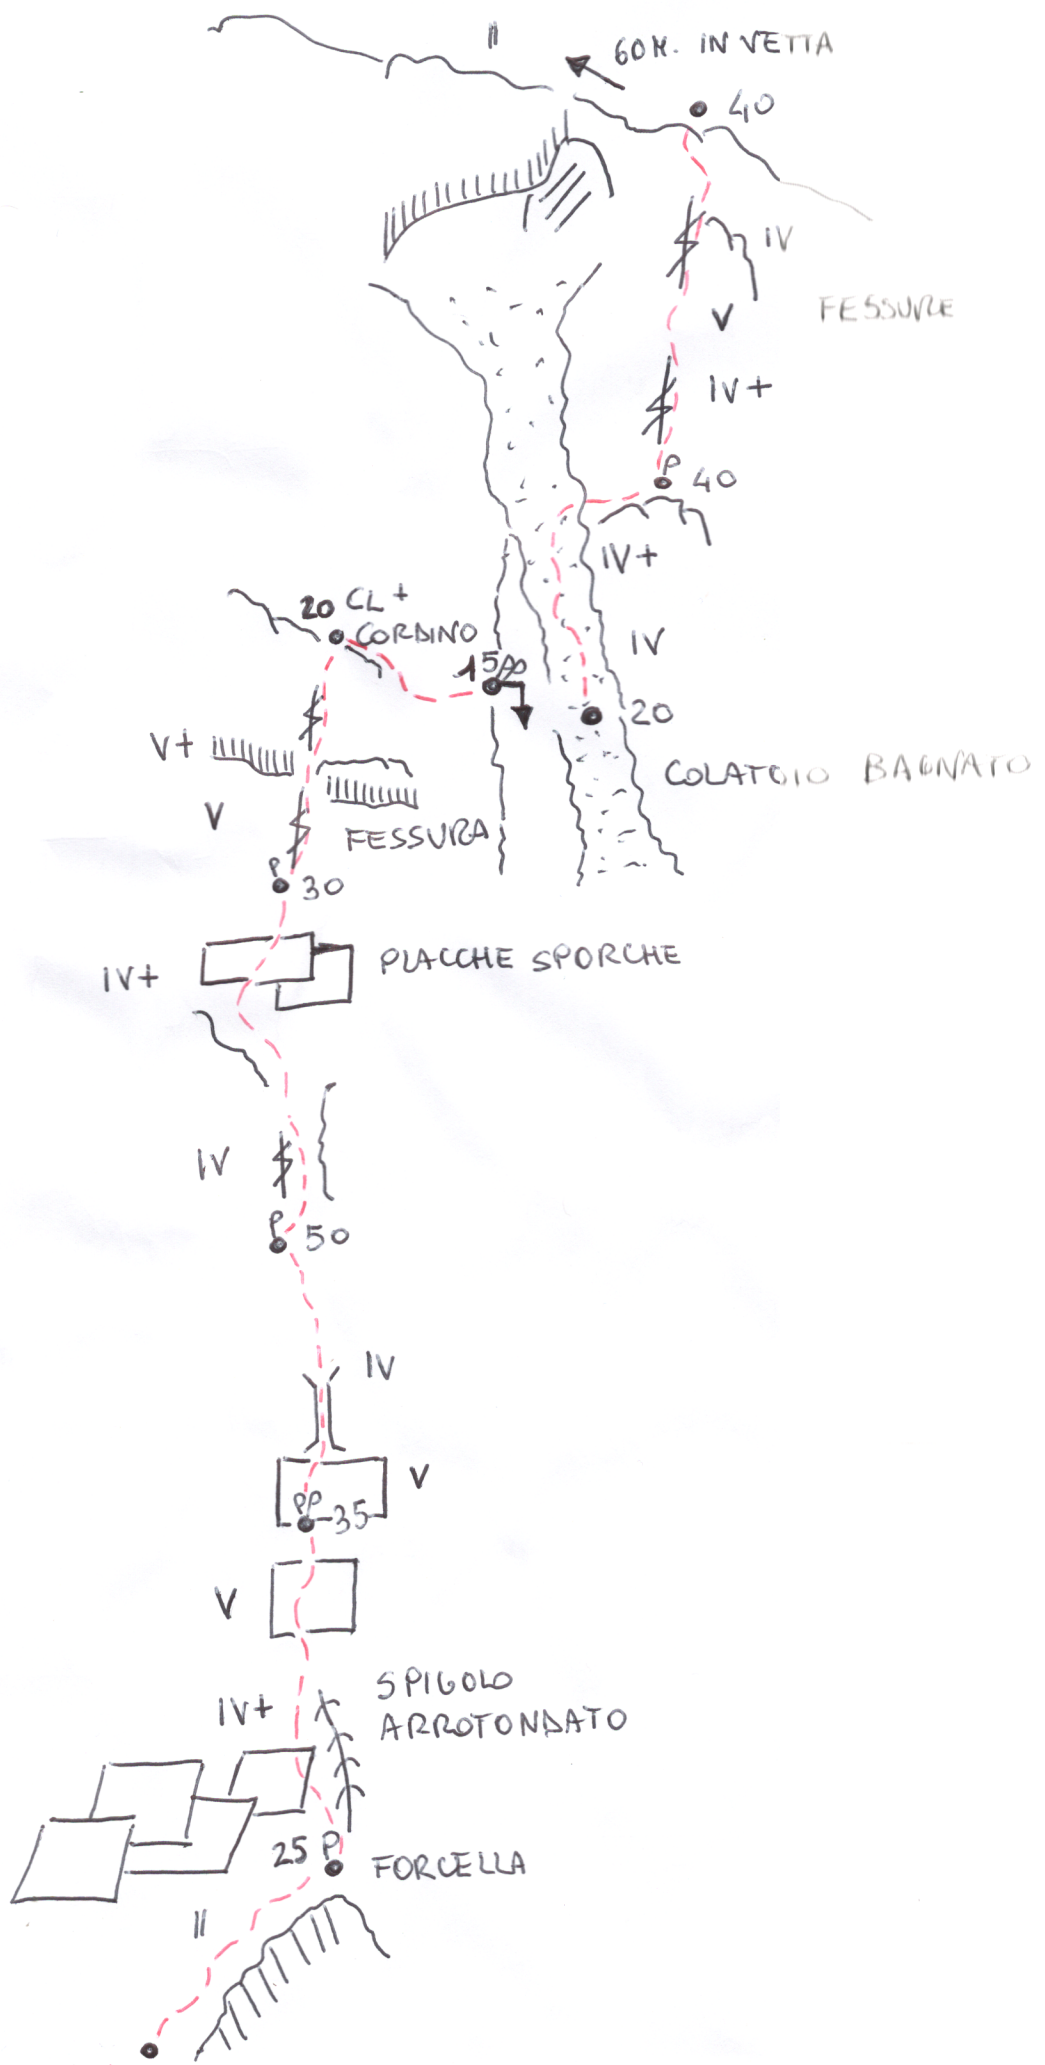 II
60 M. IN VETTA
40
IV
FESSURE
V
IV+
P
40
IV+
20 CL +
CORDINO
IV
15 PP
20
V+
COLATOIO BAGNATO
V
FESSURA
P
30
PLACCHE SPORCHE
IV+
IV
P
50
IV
V
PP
35
V
SPIGOLO
IV+
ARROTONDATO
25 P
FORCELLA
II